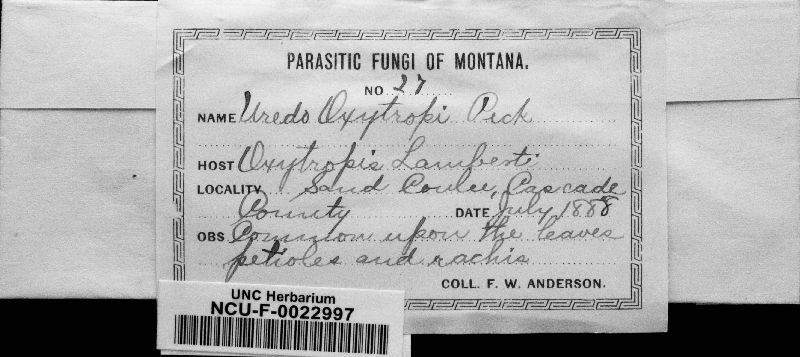 PARASITIC FUNGI OF MONTANA.
NO. 27
NAME Uredo Oxytropi Peck
HOST Oxytropis Lamberti
LOCALITY Sand Coulee, Cascade
County DATE July 1888
OBS Common upon the leaves
petioles and rachis
COLL. F. W. ANDERSON.
UNC Herbarium
NCU-F-0022997